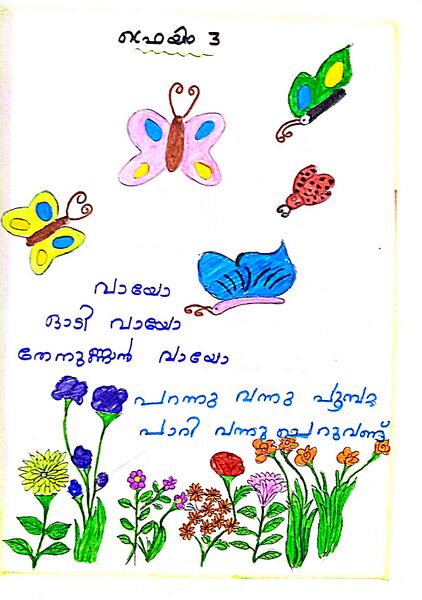 ഫ്രെയിം 3
വായോ
ഓടി വായോ
തേനുണ്ണാൻ വായോ
പറന്നു വന്നു
പാറി വന്നു ചെറുവണ്ട്